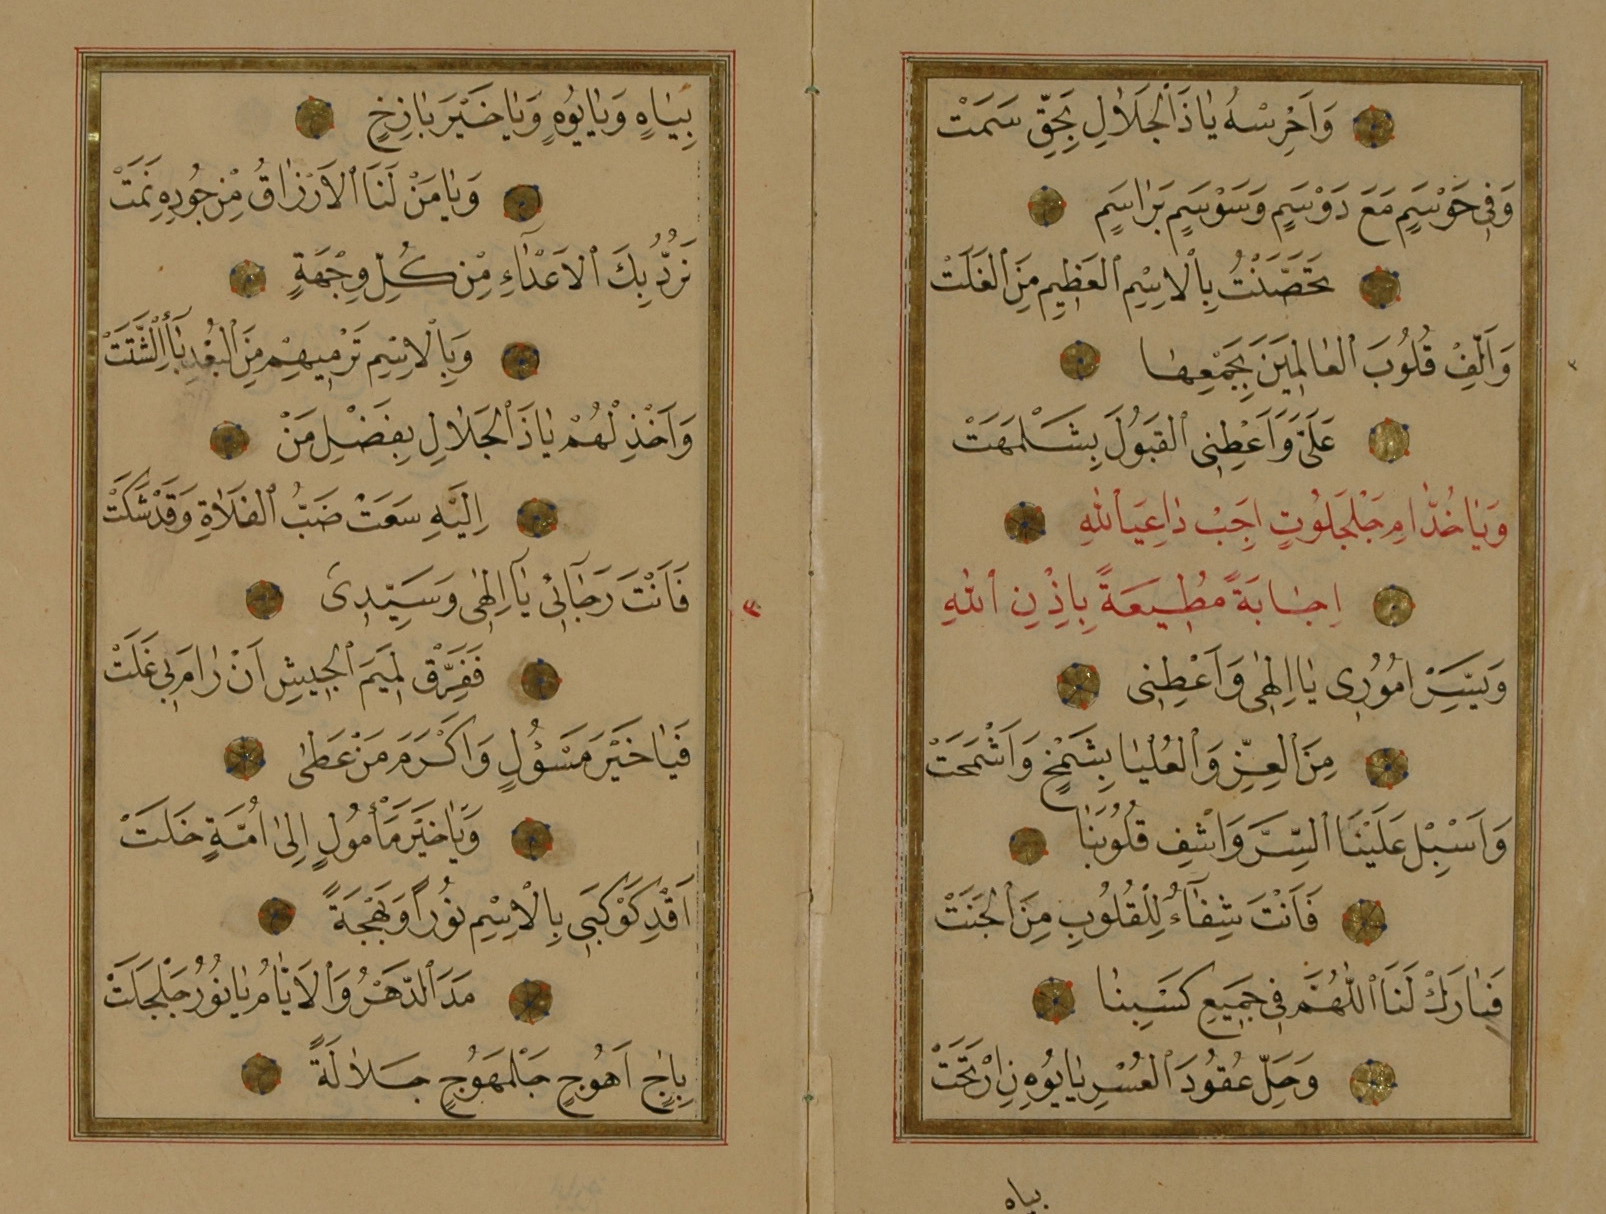 وَاَخْرِسْهُ يَا ذَا الْجَلَالِ بِحَقِّ سَمَتْ
وَفِي حَوْسَمٍ مَعَ دَوْسَمٍ وَسَوْسَمٍ بَرَاسَمٍ
تَحَصَّنْتُ بِالْاِسْمِ الْعَظِيمِ مِنَ الْغَلَتْ
وَاَلِّفْ قُلُوبَ الْعَالَمِينَ بِجَمْعِهَا
عَلَيَّ وَاَعْطِنِي الْقَبُولَ بِشَلْمَهَتْ
وَيَا خُدَّامَ جَلْجَلُوتٍ اَجِبْ دَاعِيَ اللهِ
اِجَابَةً مُطِيعَةً بِاِذْنِ اللهِ
وَيَسِّرْ اُمُورِي يَا اِلٰهِي وَاَعْطِنِي
مِنَ الْعِزِّ وَالْعُلْيَا بِشَمْخٍ وَاَشْمَخَتْ
وَاَسْبِلْ عَلَيْنَا السِّرَّ وَاشْفِ قُلُوبَنَا
فَاَنْتَ شِفَاءٌ لِلْقُلُوبِ مِنَ الْجَنَتْ
فَبَارِكْ لَنَا اللّٰهُمَّ فِي جَمِيعِ كَسْبِنَا
وَحِلِّ عُقُودَ الْعُسْرِ يَا يُوهٍ نِ ارْتَحَتْ
بياه
بِيَاهٍ وَيَا يُوهٍ وَيَا خَيْرَ بَازِخٍ
وَيَا مَنْ لَنَا الْاَرْزَاقُ مِنْ جُودِهِ نَمَتْ
نَرُدُّ بِكَ الْاَعْدَاءِ مِنْ كُلِّ وِجْهَةٍ
وَبِالْاِسْمِ تَرْمِيهِمْ مِنَ الْبُعْدِ بِالشَّتَتْ
وَاَخْذِلْهُمْ يَا ذَا الْجَلَالِ بِفَضْلِ مَنْ
اِلَيْهِ سَعَتْ ضَبُّ الْفَلَاةِ وَقَدْ شَكَتْ
فَاَنْتَ رَجَائِي يَا اِلٰهِي وَسَيِّدِي
فَفَرِّقْ لَمِيمَ الْجَيْشِ اَنْ رَامَ بِي غَلَتْ
فَيَا خَيْرَ مَسْؤُلٍ وَاَكْرَمَ مَنْ عَطٰى
وَيَا خَيْرَ مَأْمُولٍ اِلٰى اُمَّةٍ خَلَتْ
اَقِدْ كَوْكَبِي بِالْاِسْمِ نُوراً وَبَهْجَةً
مَدَ الدَّهْرُ وَالْاَيَّامُ يَا نُورُ جَلْجَلَتْ
بِاٰجٍ اَهُوجٍ جَلْمَهُوجٍ جَلَالَةً